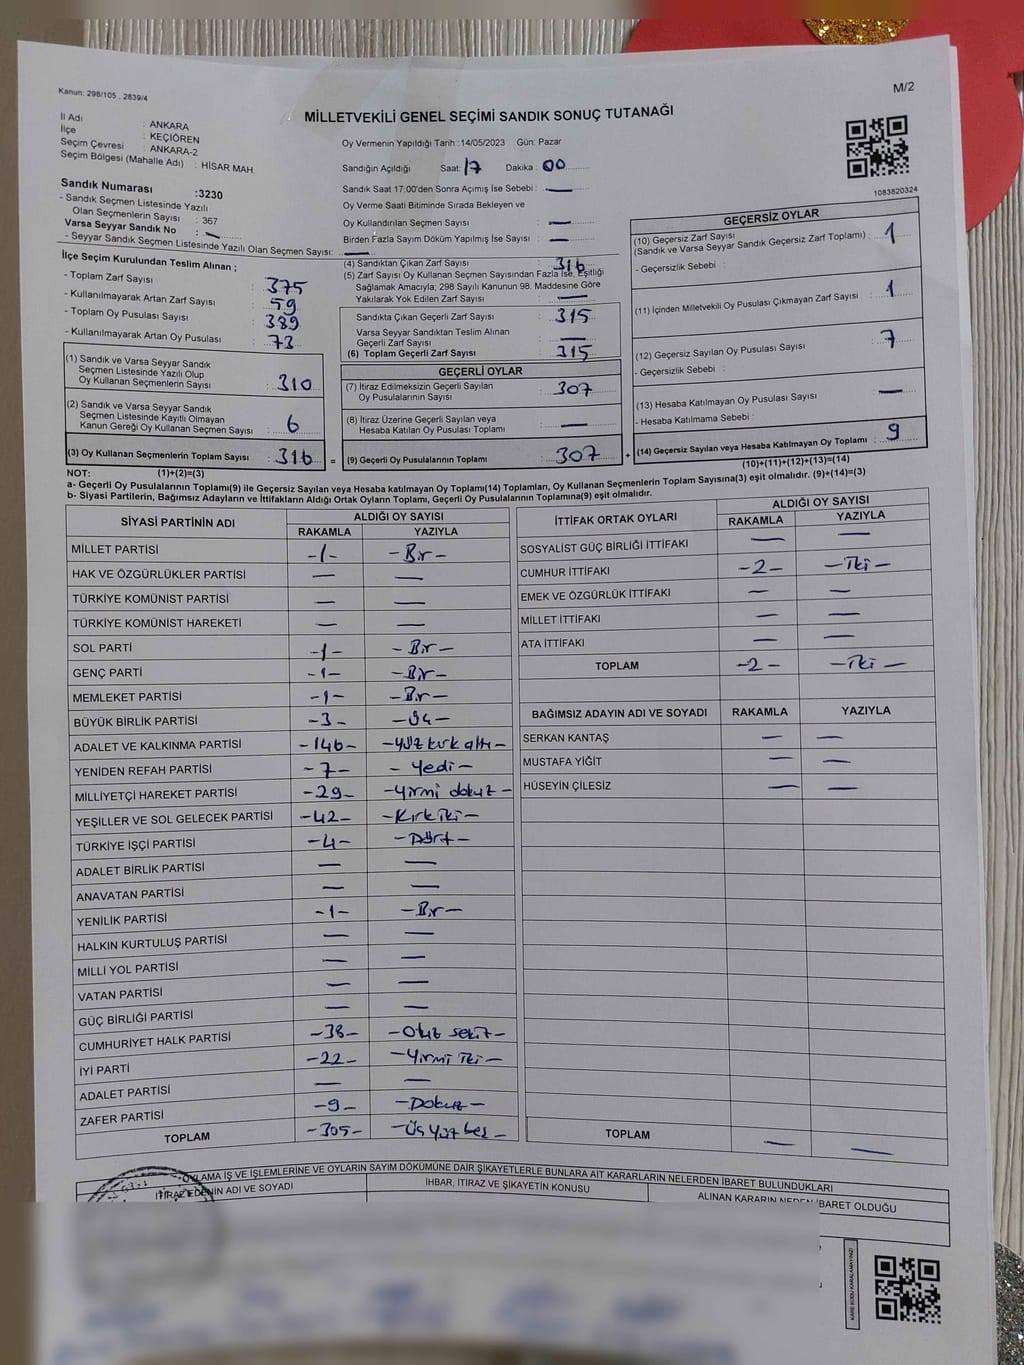 Kanun: 298/105 , 2839/4
M/2
MİLLETVEKİLİ GENEL SEÇİMİ SANDIK SONUÇ TUTANAĞI
İl Adı : ANKARA
İlçe : KEÇİÖREN
Seçim Çevresi : ANKARA-2
Seçim Bölgesi (Mahalle Adı) : HİSAR MAH.
Sandık Numarası :3230
- Sandık Seçmen Listesinde Yazılı
Olan Seçmenlerin Sayısı : 367
Varsa Seyyar Sandık No : —
- Seyyar Sandık Seçmen Listesinde Yazılı Olan Seçmen Sayısı: —
Oy Vermenin Yapıldığı Tarih :14/05/2023 Gün: Pazar
Sandığın Açıldığı Saat: 17 Dakika : 00
Sandık Saat 17:00'den Sonra Açımış İse Sebebi : —
Oy Verme Saati Bitiminde Sırada Bekleyen ve
Oy Kullandırılan Seçmen Sayısı : —
Birden Fazla Sayım Döküm Yapılmış İse Sayısı : —
1083820324
İlçe Seçim Kurulundan Teslim Alınan ;
- Toplam Zarf Sayısı : 375
- Kullanılmayarak Artan Zarf Sayısı : 59
- Toplam Oy Pusulası Sayısı : 389
- Kullanılmayarak Artan Oy Pusulası : 73
(1) Sandık ve Varsa Seyyar Sandık
Seçmen Listesinde Yazılı Olup
Oy Kullanan Seçmenlerin Sayısı : 310
(2) Sandık ve Varsa Seyyar Sandık
Seçmen Listesinde Kayıtlı Olmayan
Kanun Gereği Oy Kullanan Seçmen Sayısı : 6
(3) Oy Kullanan Seçmenlerin Toplam Sayısı : 316 =
(4) Sandıktan Çıkan Zarf Sayısı : 316
(5) Zarf Sayısı Oy Kullanan Seçmen Sayısından Fazla İse, Eşitliği
Sağlamak Amacıyla; 298 Sayılı Kanunun 98. Maddesine Göre
Yakılarak Yok Edilen Zarf Sayısı : —
Sandıkta Çıkan Geçerli Zarf Sayısı : 315
Varsa Seyyar Sandıktan Teslim Alınan
Geçerli Zarf Sayısı : —
(6) Toplam Geçerli Zarf Sayısı : 315
GEÇERLİ OYLAR
(7) İtiraz Edilmeksizin Geçerli Sayılan
Oy Pusulalarının Sayısı : 307
(8) İtiraz Üzerine Geçerli Sayılan veya
Hesaba Katılan Oy Pusulası Toplamı : —
(9) Geçerli Oy Pusulalarının Toplamı : 307 +
GEÇERSİZ OYLAR
(10) Geçersiz Zarf Sayısı
(Sandık ve Varsa Seyyar Sandık Geçersiz Zarf Toplamı) : 1
- Geçersizlik Sebebi :
(11) İçinden Milletvekili Oy Pusulası Çıkmayan Zarf Sayısı : 1
(12) Geçersiz Sayılan Oy Pusulası Sayısı : 7
- Geçersizlik Sebebi :
(13) Hesaba Katılmayan Oy Pusulası Sayısı : —
- Hesaba Katılmama Sebebi :
(14) Geçersiz Sayılan veya Hesaba Katılmayan Oy Toplamı : 9
(10)+(11)+(12)+(13)=(14)
NOT: (1)+(2)=(3)
a- Geçerli Oy Pusulalarının Toplamı(9) ile Geçersiz Sayılan veya Hesaba katılmayan Oy Toplamı(14) Toplamları, Oy Kullanan Seçmenlerin Toplam Sayısına(3) eşit olmalıdır. (9)+(14)=(3)
b- Siyasi Partilerin, Bağımsız Adayların ve İttifakların Aldığı Ortak Oyların Toplamı, Geçerli Oy Pusulalarının Toplamına(9) eşit olmalıdır.
SİYASİ PARTİNİN ADI ALDIĞI OY SAYISI
RAKAMLA YAZIYLA
MİLLET PARTİSİ -1- -Bir-
HAK VE ÖZGÜRLÜKLER PARTİSİ — —
TÜRKİYE KOMÜNİST PARTİSİ — —
TÜRKİYE KOMÜNİST HAREKETİ — —
SOL PARTİ -1- -Bir-
GENÇ PARTİ -1- -Bir-
MEMLEKET PARTİSİ -1- -Bir-
BÜYÜK BİRLİK PARTİSİ -3- -Üç-
ADALET VE KALKINMA PARTİSİ -146- -yüz kırk altı-
YENİDEN REFAH PARTİSİ -7- -Yedi-
MİLLİYETÇİ HAREKET PARTİSİ -29- -yirmi dokuz-
YEŞİLLER VE SOL GELECEK PARTİSİ -42- -Kırk iki-
TÜRKİYE İŞÇİ PARTİSİ -4- -Dört-
ADALET BİRLİK PARTİSİ — —
ANAVATAN PARTİSİ — —
YENİLİK PARTİSİ -1- -Bir-
HALKIN KURTULUŞ PARTİSİ — —
MİLLİ YOL PARTİSİ — —
VATAN PARTİSİ — —
GÜÇ BİRLİĞİ PARTİSİ — —
CUMHURİYET HALK PARTİSİ -38- -Otuz sekiz-
İYİ PARTİ -22- -Yirmi iki-
ADALET PARTİSİ — —
ZAFER PARTİSİ -9- -Dokuz-
TOPLAM -305- -Üç yüz beş-
İTTİFAK ORTAK OYLARI ALDIĞI OY SAYISI
RAKAMLA YAZIYLA
SOSYALİST GÜÇ BİRLİĞİ İTTİFAKI — —
CUMHUR İTTİFAKI -2- -İki-
EMEK VE ÖZGÜRLÜK İTTİFAKI — —
MİLLET İTTİFAKI — —
ATA İTTİFAKI — —
TOPLAM -2- -İki-
BAĞIMSIZ ADAYIN ADI VE SOYADI RAKAMLA YAZIYLA
SERKAN KANTAŞ — —
MUSTAFA YİĞİT — —
HÜSEYİN ÇİLESİZ — —
TOPLAM — —
OYLAMA İŞ VE İŞLEMLERİNE VE OYLARIN SAYIM DÖKÜMÜNE DAİR ŞİKAYETLERLE BUNLARA AİT KARARLARIN NELERDEN İBARET BULUNDUKLARI
İTİRAZ EDENİN ADI VE SOYADI İHBAR, İTİRAZ VE ŞİKAYETİN KONUSU ALINAN KARARIN NEDEN İBARET OLDUĞU
KARE KODU KARALAMAYINIZ!